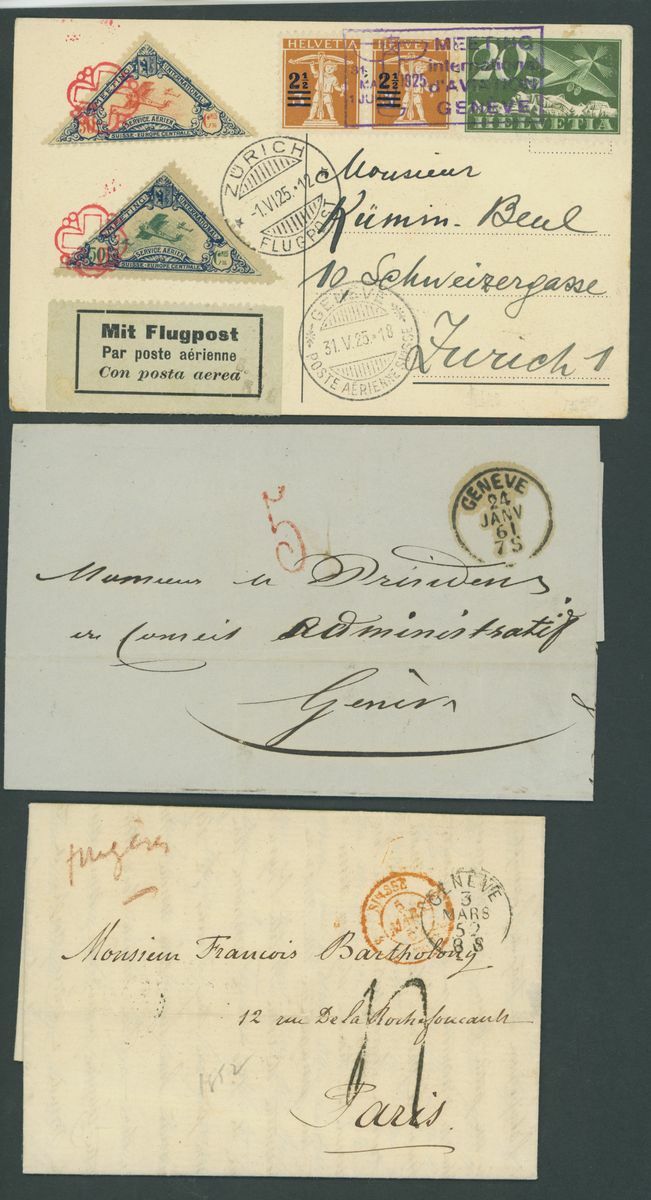 MEETING
INTERNATIONAL
50
SERVICE AÉRIEN
SUISSE-EUROPE CENTRALE
HELVETIA
2½
2½
20
HELVETIA
MEETING
international
d'AVIATION
GENÈVE
31
MA
1925
1 JU
ZÜRICH
-1.VI.25.-12
FLUGPOST
MEETING
INTERNATIONAL
50
SERVICE AÉRIEN
SUISSE-EUROPE CENTRALE
Monsieur
Kümin-Beul
10 Schweizergasse
Zurich 1
GENÈVE
31.V.25.-18
POSTE AÉRIENNE SUISSE
Mit Flugpost
Par poste aérienne
Con posta aerea
5
GENÈVE
24
JANV
61
7S
Monsieur le Président
du Conseil administratif
Genève
SUISSE
5
MARS
GENÈVE
3
MARS
52
8S
Monsieur Francois Bartholony
12 rue De la Rochefoucault
1852
Paris.